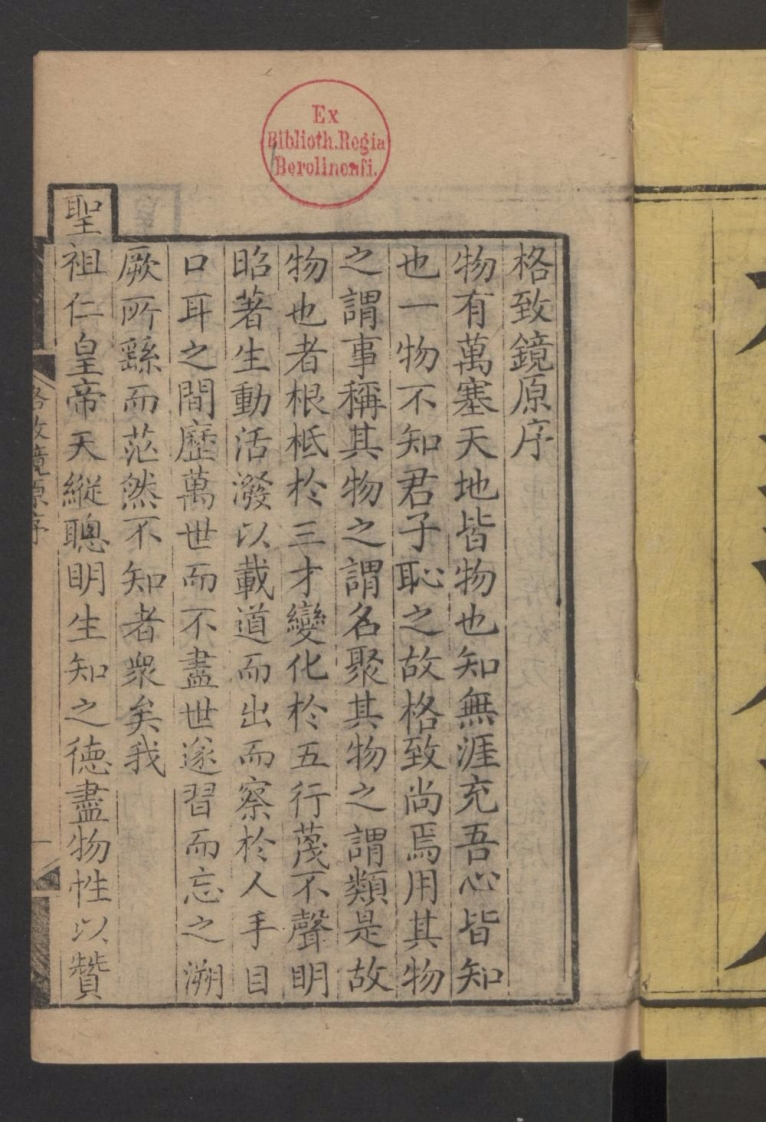 Ex
Biblioth.Regia
Berolinenſi.
格致鏡原序
物有萬塞天地皆物也知無涯充吾心皆知
也一物不知君子恥之故格致尚焉用其物
之謂事稱其物之謂名聚其物之謂類是故
物也者根柢於三才變化於五行蔑不聲明
昭著生動活潑以載道而出而察於人手目
口耳之間歷萬世而不盡世遂習而忘之溯
厥所繇而茫然不知者衆矣我
聖祖仁皇帝天縱聰明生知之德盡物性以贊
格致鏡原序
一